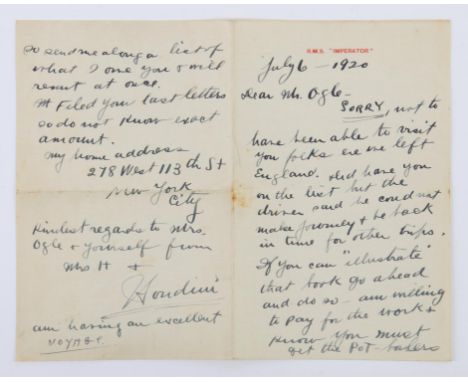 R.M.S. "IMPERATOR"
July 6 - 1920
Dear Mr. Ogle-
SORRY, not to
have been able to visit
you folks ere we left
England. Did have you
on the list but the
driver said he could not
make journey & be back
in time for other trips.
If you can "illustrate"
that book go ahead
and do so - am willing
to pay for the work &
know you must
get the Pot-boilers
So send me along a list of
what I owe you & will
remit at once.
Mr Filed your last letters
so do not know exact
amount.
My home address
278 West 113th St
New York
City
Kindest regards to Mrs.
Ogle & yourself from
Mrs H &
Houdini
am having an excellent
VOYAGE